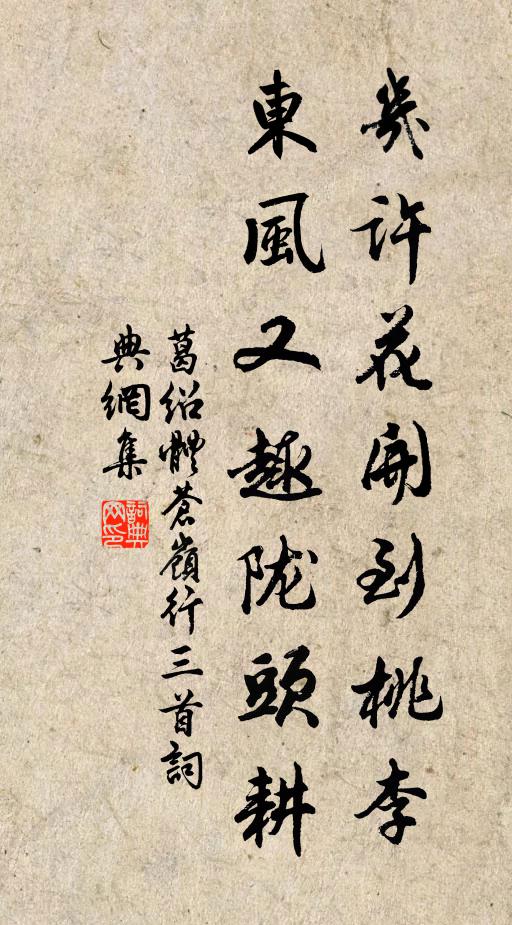 幾許花開到桃李
東風又趣陇頭耕
葛绍體蒼嶺行三首詞
典網集
詞典
网印